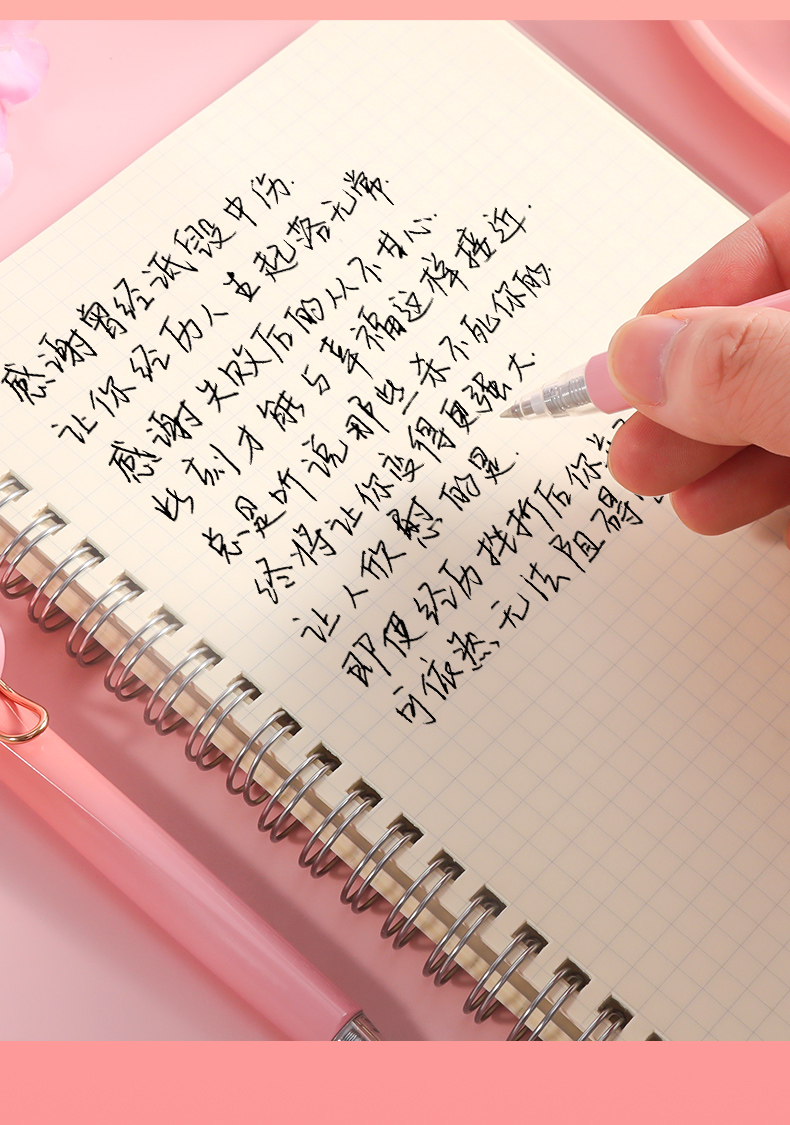 感谢曾经诋毁中伤.
让你经历人生起落无常.
感谢失败后的从不甘心.
此刻才能与幸福这样接近.
总是听说那些杀不死你的.
终将让你变得更强大.
让人欣慰的是.
即便经历挫折后你
可依然无法阻碍